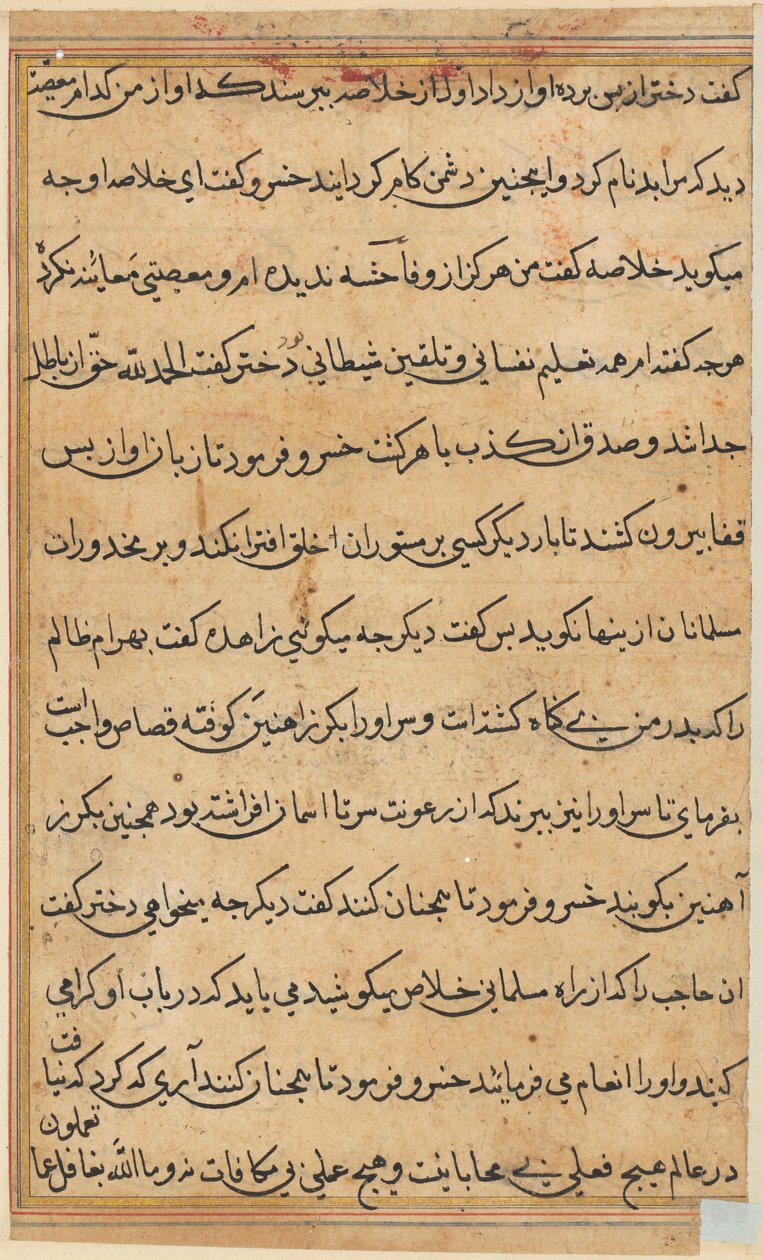 کفت دختر از بس برده اواز داد اول از خلاصه ببرسند که او از من کدام معصیت
دید که مرا بدنام کرد و اینجنین دشمن کام کردایند خسرو کفت ای خلاصه او جه
میکوید خلاصه کفت من هرکز از و فأحشه ندیده ام و معصیتی معائنه نکرده
هرجه کفته ام همه تعلیم نفسانی و تلقین شیطانی بود دختر کفت الحمد لله حق از باطل
جدا شد و صدق از کذب باهر کشت خسرو فرمود تا زبان او از بس
قفا بیرون کشند تا بار دیکر کسی بر مستوران خلق افترا نکند و بر مخدوران
مسلمانان ازینها نکوید بس کفت دیکر جه میکوئی زاهده کفت بهرام ظالم
را که بدر من بی کناه کشته است و سر او را بکرز اهنین کوفته قصاص واجب است
بفرمای تا سر او را نیز ببرند که از رعونت سر تا اسمان افراشته بود همجنین بکرز
آهنین بکوبند خسرو فرمود تا همجنان کنند کفت دیکر جه میخواهی دختر کفت
ان حاجب را که از راه مسلمانی خلاص میکوشید می باید که در باب او کرامی
کنند و او را انعام می فرمائند خسرو فرمود تا همجنان کنند آری که کرد که نیافت
در عالم هیج فعلی بی محابا نیست و هیج عملی بی مکافات نه و ما الله بغافل عما تعملون